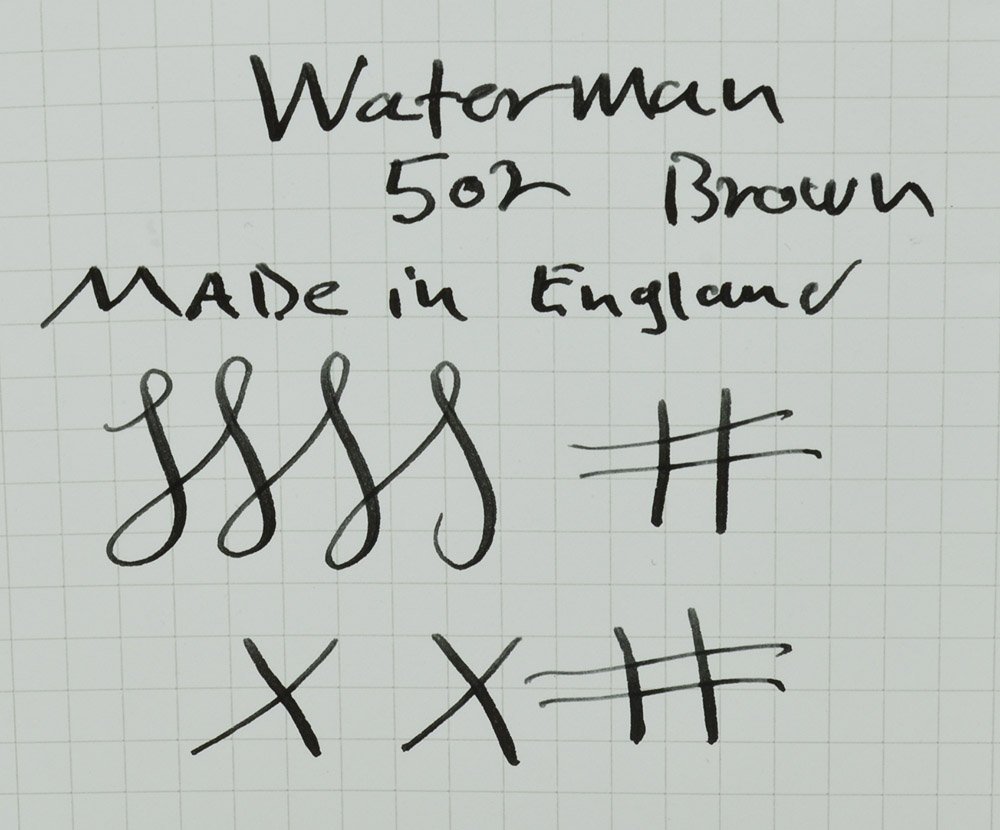 Waterman
502 Brown
MADe in England
X X